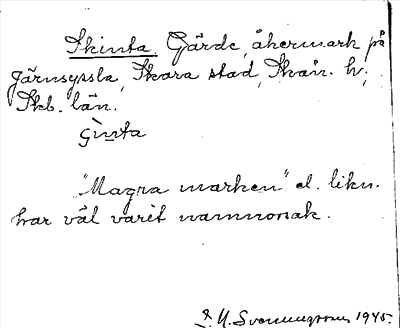 Skinta. Gärde, åkermark på
Järnsyssla, Skara stad, Skån. h.,
Skb. län.
"Magra marken" el. likn.
har väl varit namnorsak.
Svenningsson 1945.